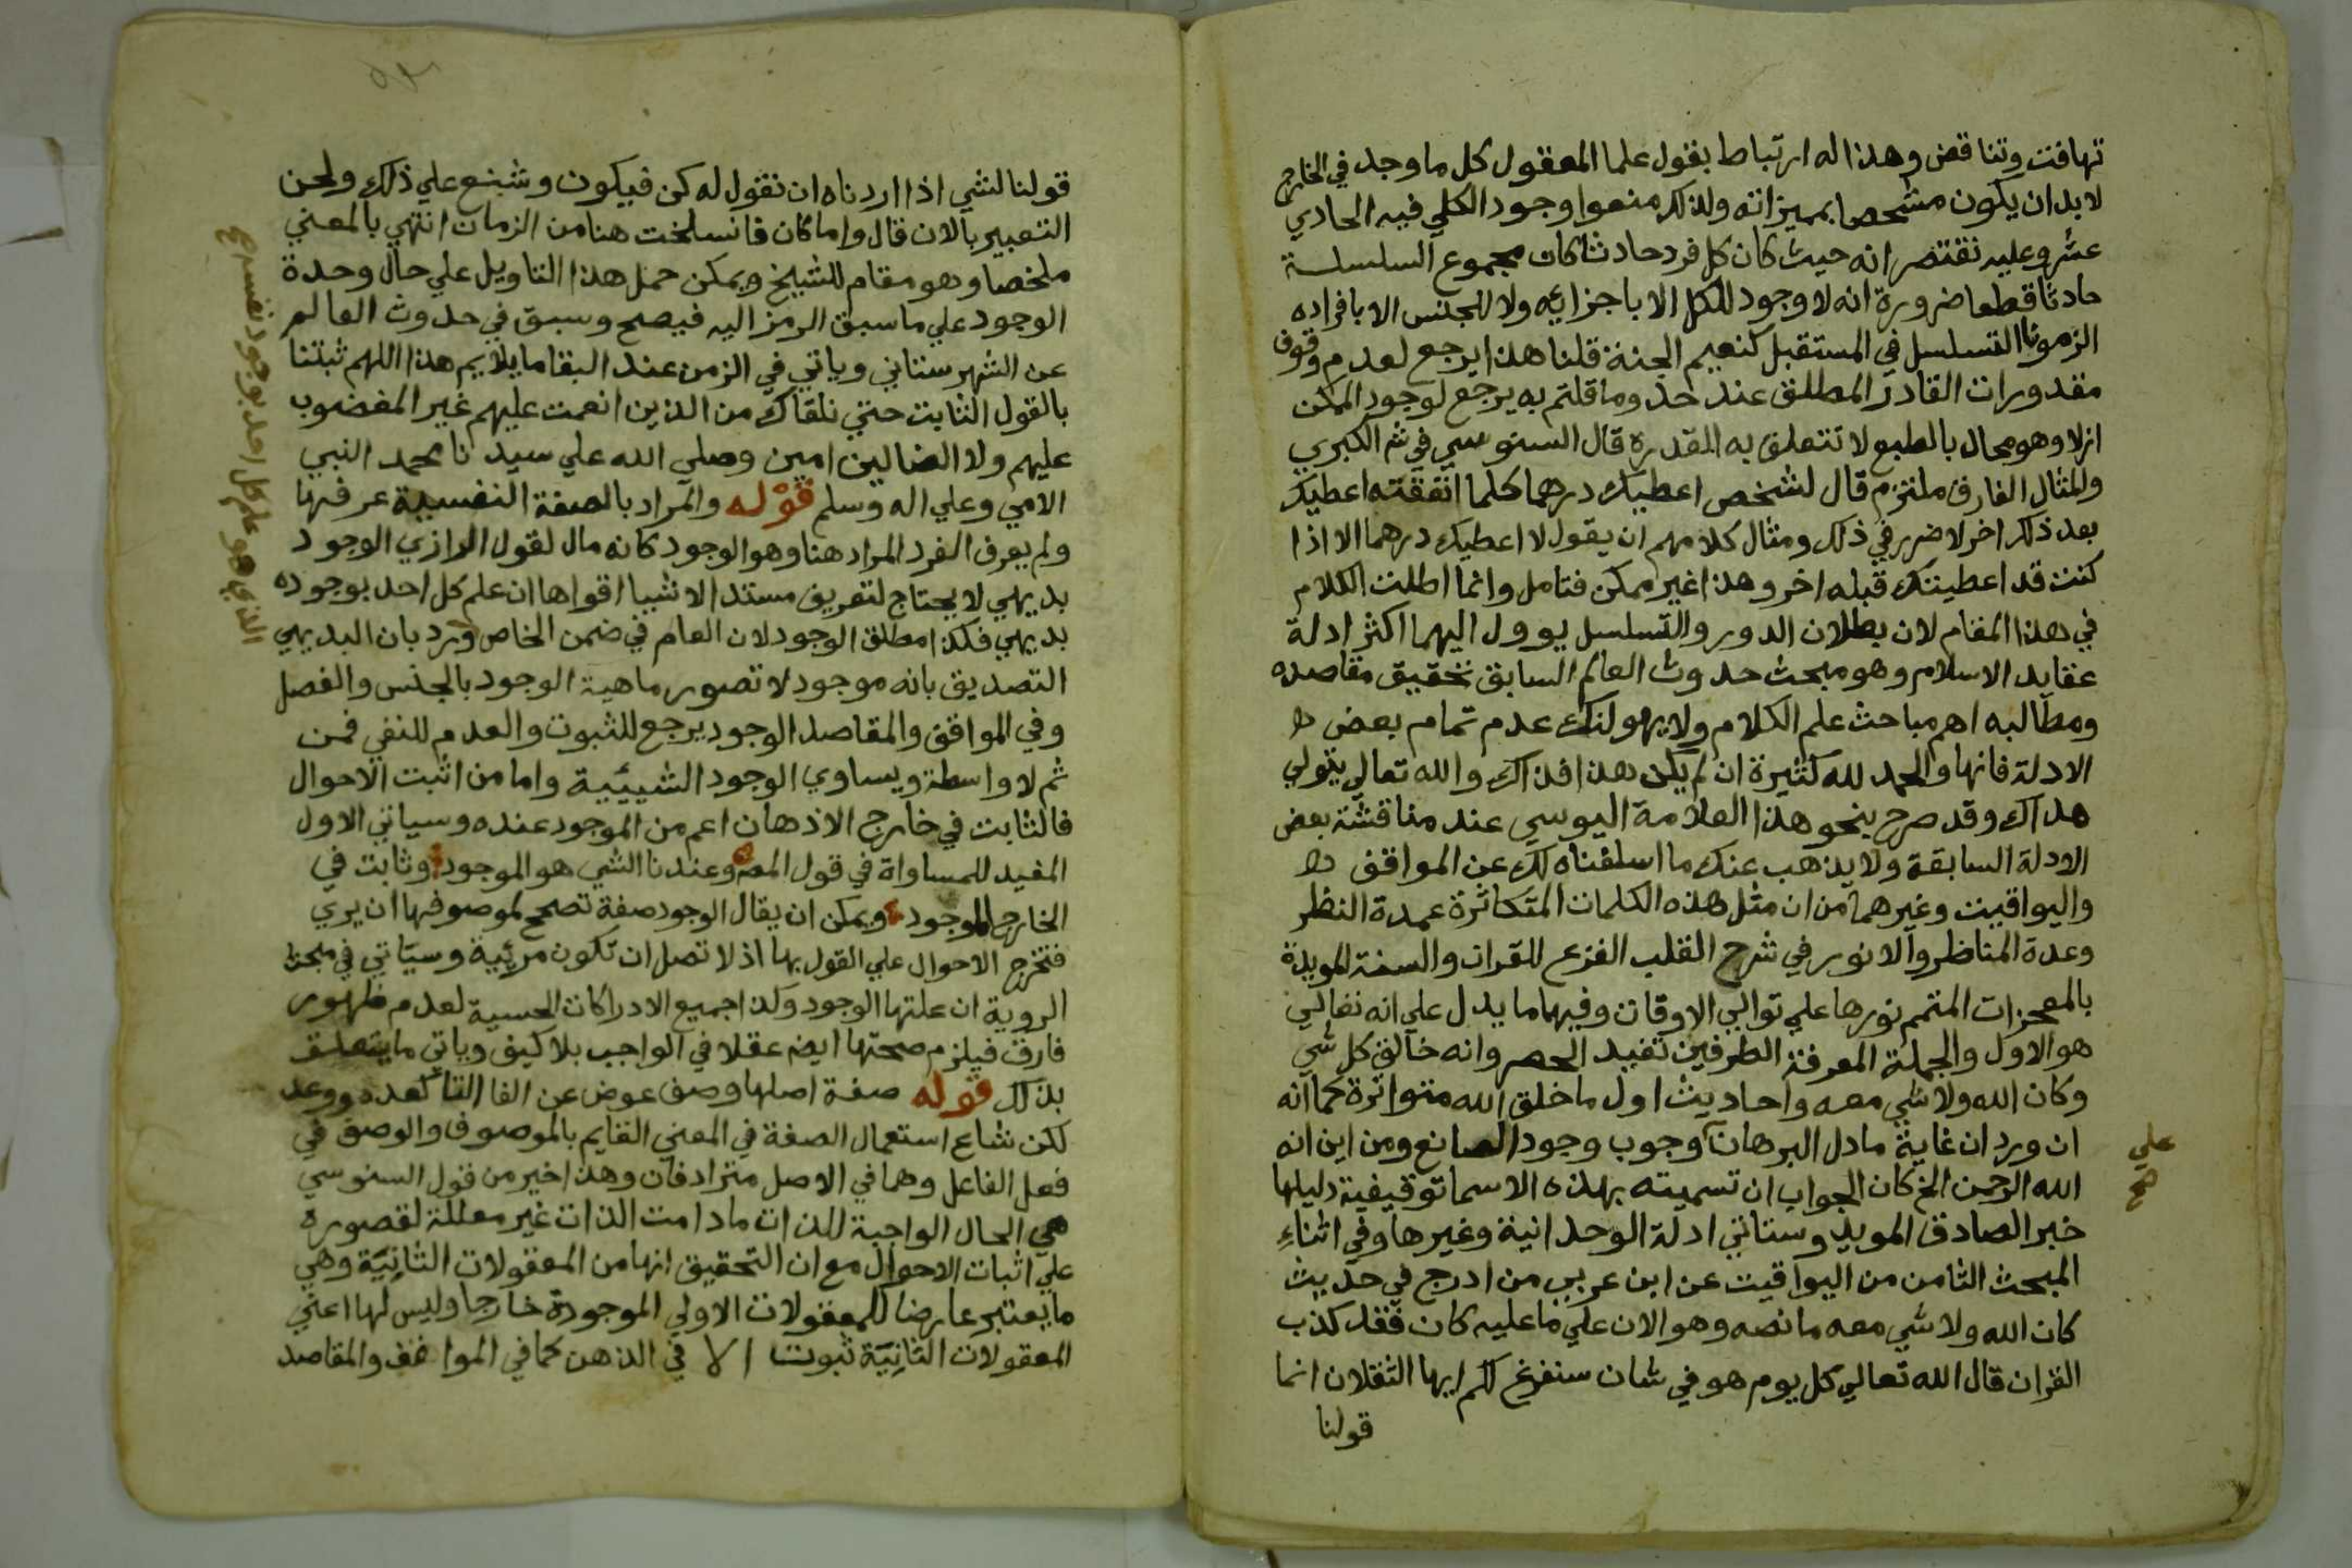 تهافت وتناقض وهذا له ارتباط بقول علما المعقول كل ما وجد في الخارج
لا بد ان يكون مشخصا بمميزاته ولذلك منعوا وجود الكلي فيه الحادي
عشر وعليه نقتصر انه حيث كان كل فرد حادثا كان مجموع السلسلة
حادثا قطعا ضرورة انه لا وجود للكل الا باجزايه ولا للجنس الا بافراده
الزمونا التسلسل في المستقبل كنعيم الجنة قلنا هذا يرجع لعدم وقوف
مقدورات القادر المطلق عند حد وما قلتم به يرجع لوجود الممكن
ازلا وهو محال بالطبع لا تتعلق به القدرة قال السنوسي في ش الكبري
والمثال الفارق ملتزم قال لشخص اعطيك درهما كلما انفقته اعطيك
بعد ذلك اخر لا ضرر في ذلك ومثال كلامهم ان يقول لا اعطيك درهما الا اذا
كنت قد اعطيتك قبله اخر وهذا غير ممكن فتامل وانما اطلت الكلام
في هذا المقام لان بطلان الدور والتسلسل يوول اليهما اكثر ادلة
عقايد الاسلام وهو مبحث حدوث العالم السابق تحقيق مقاصده
ومطالبه اهم مباحث علم الكلام ولا يهولنك عدم تمام بعض
الادلة فانها والحمد لله كثيرة ان لم يكن هذا فذاك والله تعالي يتولي
هداك وقد صرح بنحو هذا العلامة اليوسي عند مناقشة بعض
الادلة السابقة ولا يذهب عنك ما اسلفناه لك عن المواقف
واليواقيت وغيرهما من ان مثل هذه الكلمات المتكاثرة عمدة النظر
وعدة المناظر والانور في شرح القلب الفزع للقران والسنة المويدة
بالمعجزات المتمم نورها علي توالي الاوقات وفيهما ما يدل علي انه تعالي
هو الاول والجملة المعرفة الطرفين تفيد الحصر وانه خالق كل شي
وكان الله ولا شي معه واحاديث اول ما خلق الله متواترة كما انه
ان ورد ان غاية ما دل البرهان وجوب وجود الصانع ومن اين انه
علي
صح
الله الرحمن الخ كان الجواب ان تسميته بهذه الاسما توقيفية دليلها
خبر الصادق المويد وستاتي ادلة الوحدانية وغيرها وفي اثناء
المبحث الثامن من اليواقيت عن ابن عربي من ادرج في حديث
كان الله ولا شي معه ما نصه وهو الان علي ما عليه كان فقد كذب
القران قال الله تعالي كل يوم هو في شان سنفرغ لكم ايها الثقلان انما
قولنا
قولنا لشي اذا اردناه ان نقول له كن فيكون وشنع علي ذلك ولحن
التعبير بالان قال واما كان فانسلخت هنا من الزمان انتهي بالمعني
ملخصا وهو مقام للشيخ ويمكن حمل هذا التاويل علي حال وحدة
الوجود علي ما سبق الرمز اليه فيصح وسبق في حدوث العالم
عن الشهرستاني وياتي في الزمن عند البقا ما يلايم هذا اللهم ثبتنا
بالقول الثابت حتي نلقاك من الذين انعمت عليهم غير المغضوب
عليهم ولا الضالين امين وصلي الله علي سيدنا محمد النبي
الامي وعلي اله وسلم قوله والمراد بالصفة النفسية عرفها
ولم يعرف الفرد المراد هنا وهو الوجود كانه مال لقول الرازي الوجود
بديهي لا يحتاج لتعريف مستند الاشيا اقواها ان علم كل احد بوجوده
بديهي فكذا مطلق الوجود لان العام في ضمن الخاص ورد بان البديهي
التصديق بانه موجود لا تصور ماهية الوجود بالجنس والفصل
وفي المواقف والمقاصد الوجود يرجع للثبوت والعدم للنفي فمن
ثم لا واسطة ويساوي الوجود الشييية واما من اثبت الاحوال
فالثابت في خارج الاذهان اعم من الموجود عنده وسياتي الاول
المفيد للمساواة في قول المصه وعندنا الشي هو الموجود وثابت في
الخارج الموجود ويمكن ان يقال الوجود صفة تصحح لموصوفها ان يري
فتخرج الاحوال علي القول بها اذ لا تصل ان تكون مرئية وسياتي في مبحث
الروية ان علتها الوجود وكذا جميع الادراكات الحسية لعدم ظهور
فارق فيلزم صحتها ايضه عقلا في الواجب بلا كيف وياتي ما يتعلق
بذلك قوله صفة اصلها وصف عوض عن الفا التا كعده ووعد
لكن شاع استعمال الصفة في المعني القايم بالموصوف والوصف في
فعل الفاعل وهما في الاصل مترادفان وهذا خير من قول السنوسي
هي الحال الواجبة للذات ما دامت الذات غير معللة لقصوره
علي اثبات الاحوال مع ان التحقيق انها من المعقولات الثانية وهي
ما يعتبر عارضا للمعقولات الاولي الموجودة خارجا وليس لها اعني
المعقولات الثانية ثبوت الا في الذهن كما في المواقف والمقاصد
الذي هو علم كل احد بوجود نفسه صح